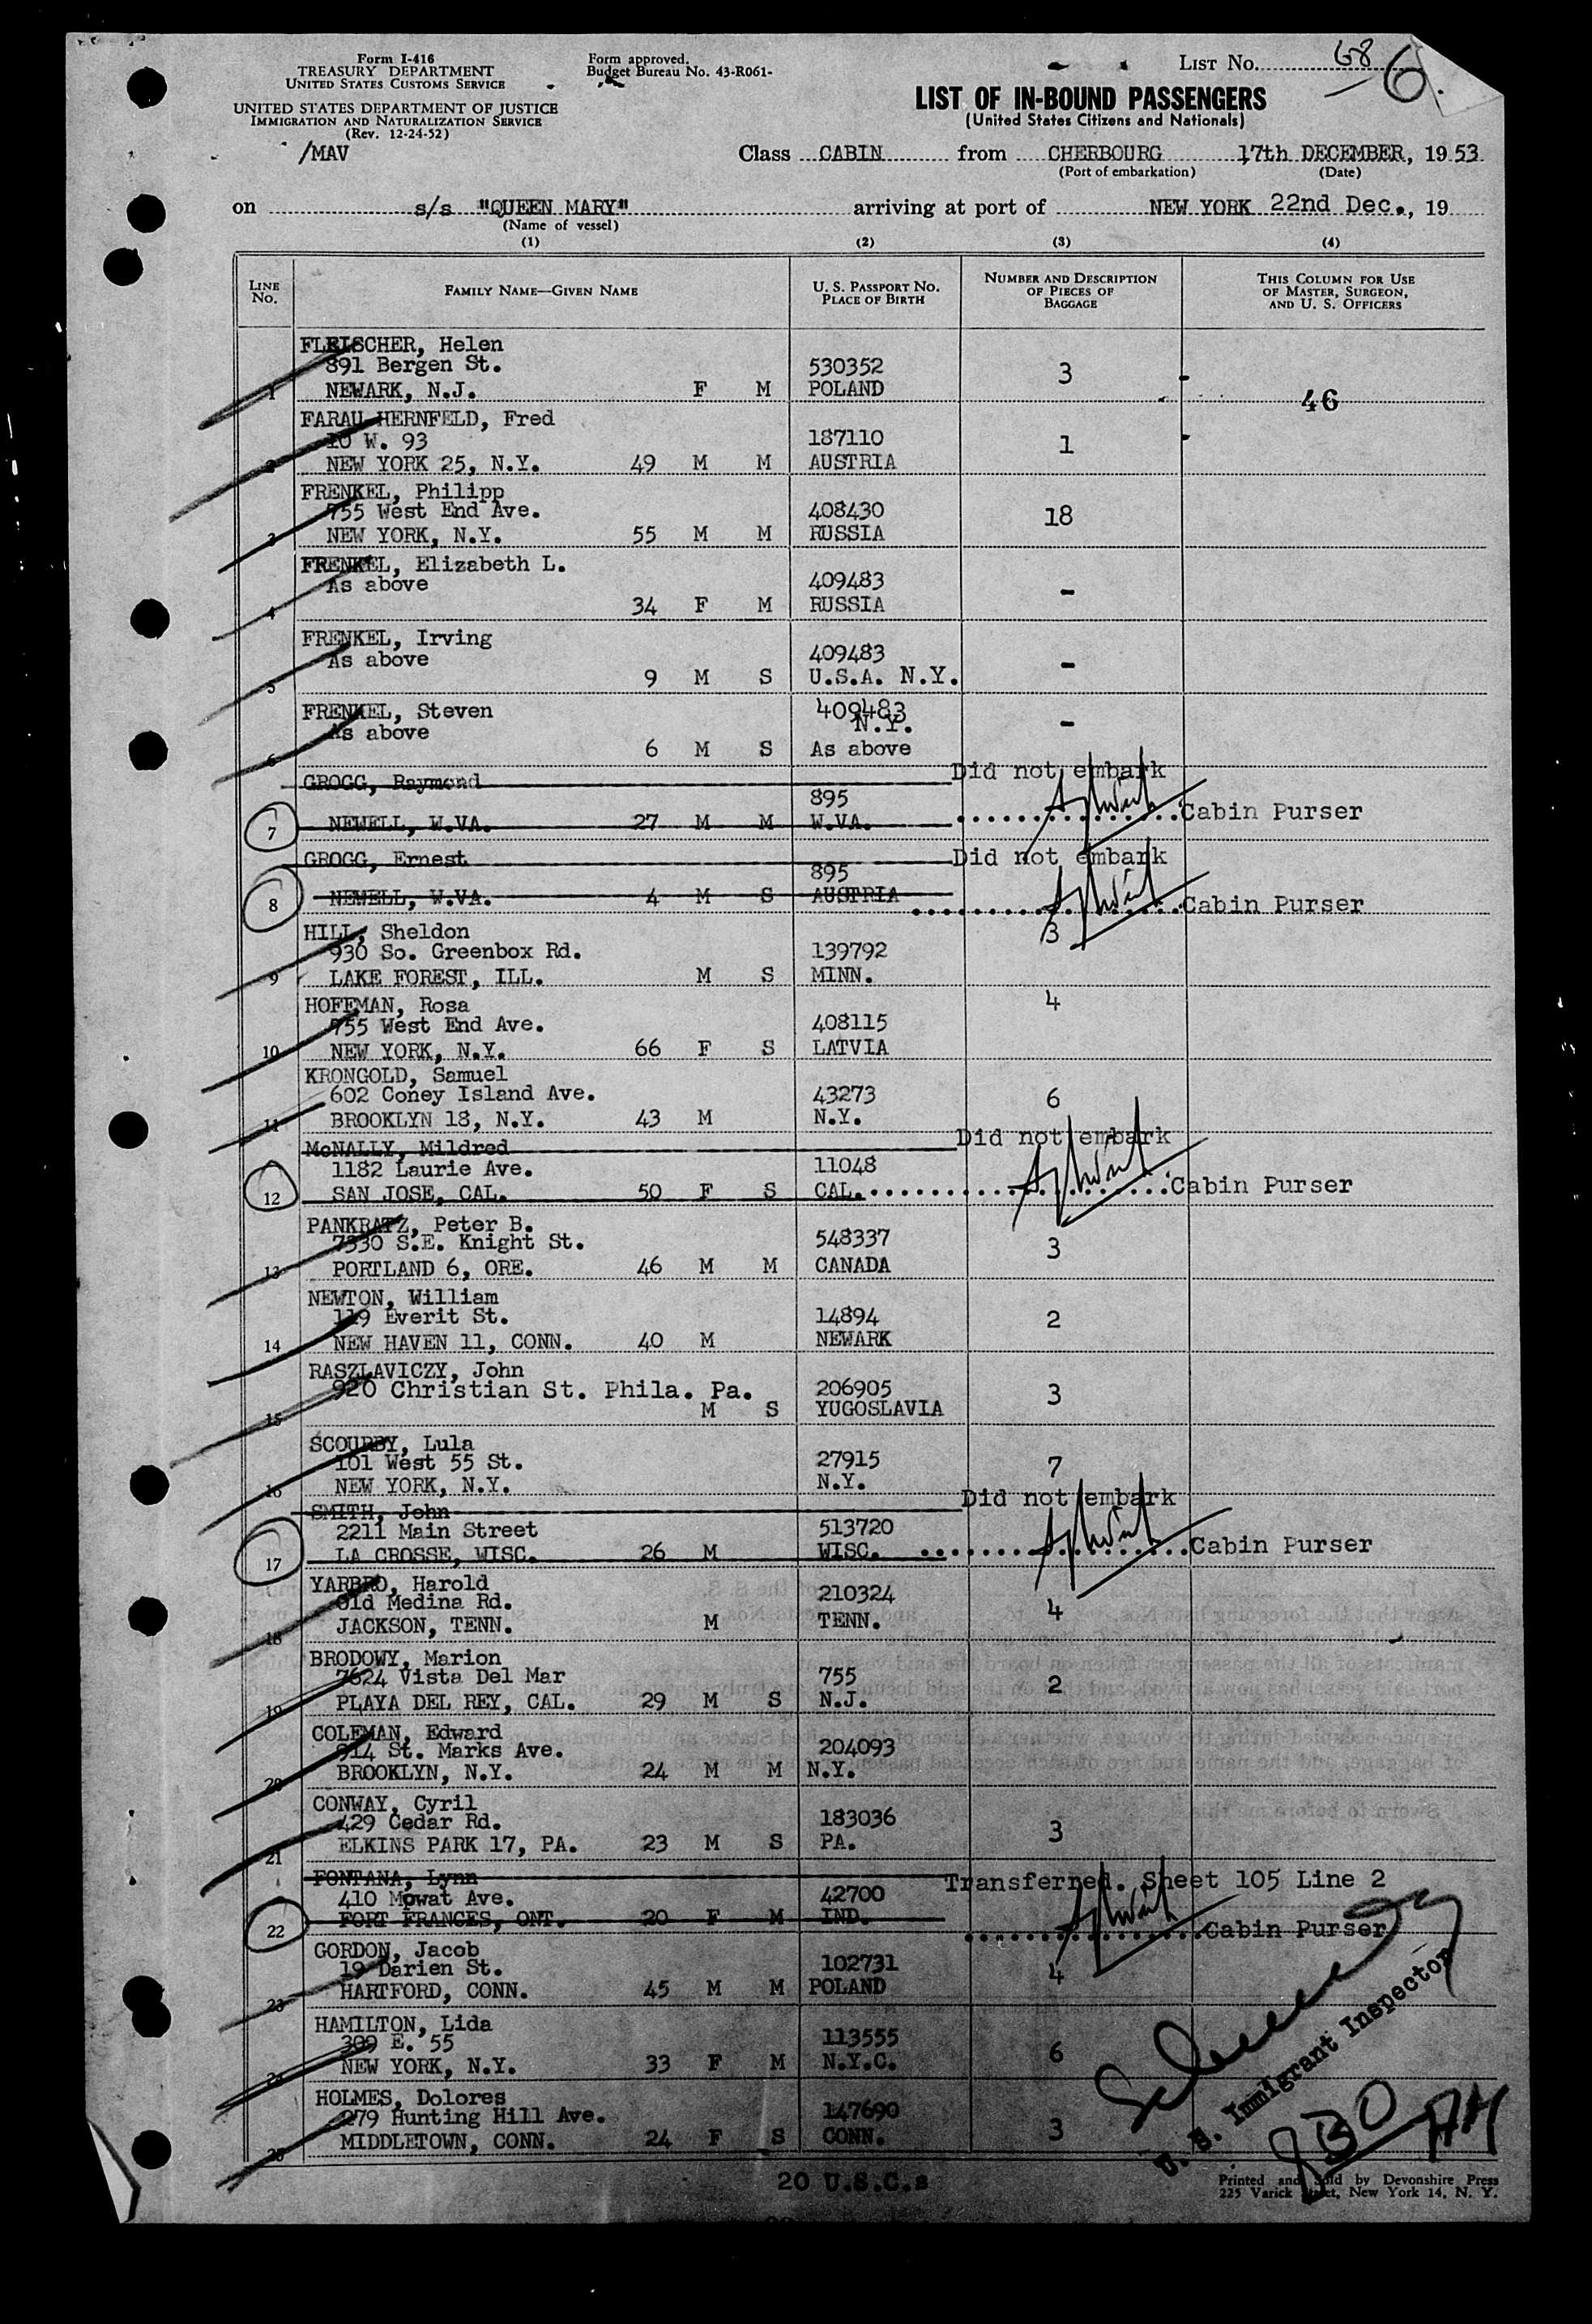 Form I-416
TREASURY DEPARTMENT
UNITED STATES CUSTOMS SERVICE
UNITED STATES DEPARTMENT OF JUSTICE
IMMIGRATION AND NATURALIZATION SERVICE
(Rev. 12-24-52)
/MAV
Form approved.
Budget Bureau No. 43-R061-
LIST NO. 68 6.
LIST OF IN-BOUND PASSENGERS
(United States Citizens and Nationals)
Class CABIN from CHERBOURG 17th DECEMBER, 19 53
(Port of embarkation) (Date)
on s/s "QUEEN MARY" arriving at port of NEW YORK 22nd Dec., 19
(Name of vessel)
(1) (2) (3) (4)
LINE NO. FAMILY NAME—GIVEN NAME U. S. PASSPORT NO. PLACE OF BIRTH NUMBER AND DESCRIPTION OF PIECES OF BAGGAGE THIS COLUMN FOR USE OF MASTER, SURGEON, AND U. S. OFFICERS
FLEISCHER, Helen
891 Bergen St. 530352 3
1 NEWARK, N.J. F M POLAND 46
FARAU HERNFELD, Fred
10 W. 93 187110 1
2 NEW YORK 25, N.Y. 49 M M AUSTRIA
FRENKEL, Philipp
755 West End Ave. 408430 18
3 NEW YORK, N.Y. 55 M M RUSSIA
FRENKEL, Elizabeth L.
As above 409483 -
4 34 F M RUSSIA
FRENKEL, Irving
As above 409483 -
5 9 M S U.S.A. N.Y.
FRENKEL, Steven 409483
As above N.Y. -
6 6 M S As above
GROGG, Raymond Did not embark
895
7 NEWELL, W.VA. 27 M M W.VA. Cabin Purser
GROGG, Ernest Did not embark
895
8 NEWELL, W.VA. 4 M S AUSTRIA Cabin Purser
HILL, Sheldon 3
930 So. Greenbox Rd. 139792
9 LAKE FOREST, ILL. M S MINN.
HOFFMAN, Rosa 4
755 West End Ave. 408115
10 NEW YORK, N.Y. 66 F S LATVIA
KRONGOLD, Samuel
602 Coney Island Ave. 43273 6
11 BROOKLYN 18, N.Y. 43 M N.Y.
McNALLY, Mildred Did not embark
1182 Laurie Ave. 11048
12 SAN JOSE, CAL. 50 F S CAL. Cabin Purser
PANKRATZ, Peter B.
7330 S.E. Knight St. 548337 3
13 PORTLAND 6, ORE. 46 M M CANADA
NEWTON, William
119 Everit St. 14894 2
14 NEW HAVEN 11, CONN. 40 M NEWARK
RASZLAVICZY, John
920 Christian St. Phila. Pa. 206905 3
15 M S YUGOSLAVIA
SCOURBY, Lula
101 West 55 St. 27915 7
16 NEW YORK, N.Y. N.Y.
SMITH, John Did not embark
2211 Main Street 513720
17 LA CROSSE, WISC. 26 M WISC. Cabin Purser
YARBRO, Harold
Old Medina Rd. 210324 4
18 JACKSON, TENN. M TENN.
BRODOWY, Marion
7624 Vista Del Mar 755 2
19 PLAYA DEL REY, CAL. 29 M S N.J.
COLEMAN, Edward
914 St. Marks Ave. 204093
20 BROOKLYN, N.Y. 24 M M N.Y.
CONWAY, Cyril
429 Cedar Rd. 183036 3
21 ELKINS PARK 17, PA. 23 M S PA.
FONTANA, Lynn Transferred. Sheet 105 Line 2
410 Mowat Ave. 42700
22 FORT FRANCES, ONT. 20 F M IND. Cabin Purser
GORDON, Jacob
19 Darien St. 102731 4
23 HARTFORD, CONN. 45 M M POLAND
HAMILTON, Lida
309 E. 55 113555 6
24 NEW YORK, N.Y. 33 F M N.Y.C.
HOLMES, Dolores
279 Hunting Hill Ave. 147690 3
25 MIDDLETOWN, CONN. 24 F S CONN.
U. S. Immigrant Inspector
830 AM
20 U.S.C.s
Printed and Sold by Devonshire Press
225 Varick Street, New York 14, N. Y.